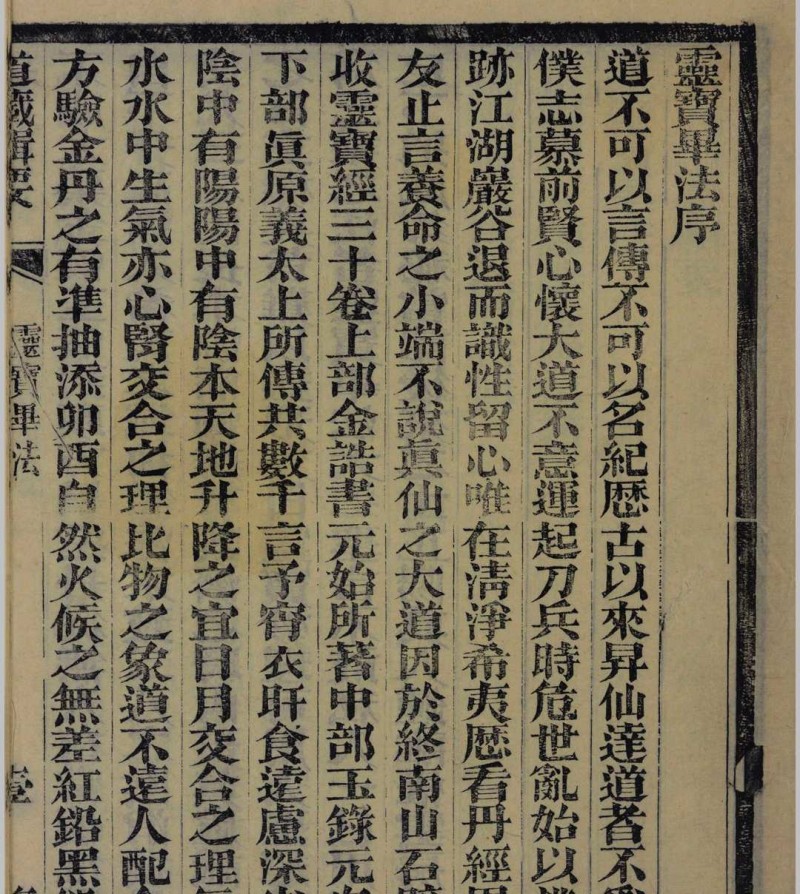 靈寶畢法序
道不可以言傳不可以名紀歷古以來昇仙達道者不
僕志慕前賢心懷大道不意運起刀兵時危世亂始以
跡江湖巖谷退而識性留心唯在淸淨希夷歷看丹經
友止言養命之小端不說眞仙之大道因於終南山石
收靈寶經三十卷上部金誥書元始所著中部玉錄元
下部眞原義太上所傳共數千言予宵衣旰食遠慮深
陰中有陽陽中有陰本天地升降之宜日月交合之理
水水中生氣亦心腎交合之理比物之象道不遠人配
方驗金丹之有準抽添卯酉自然火候之無差紅鉛黑
道藏輯要
靈寶畢法